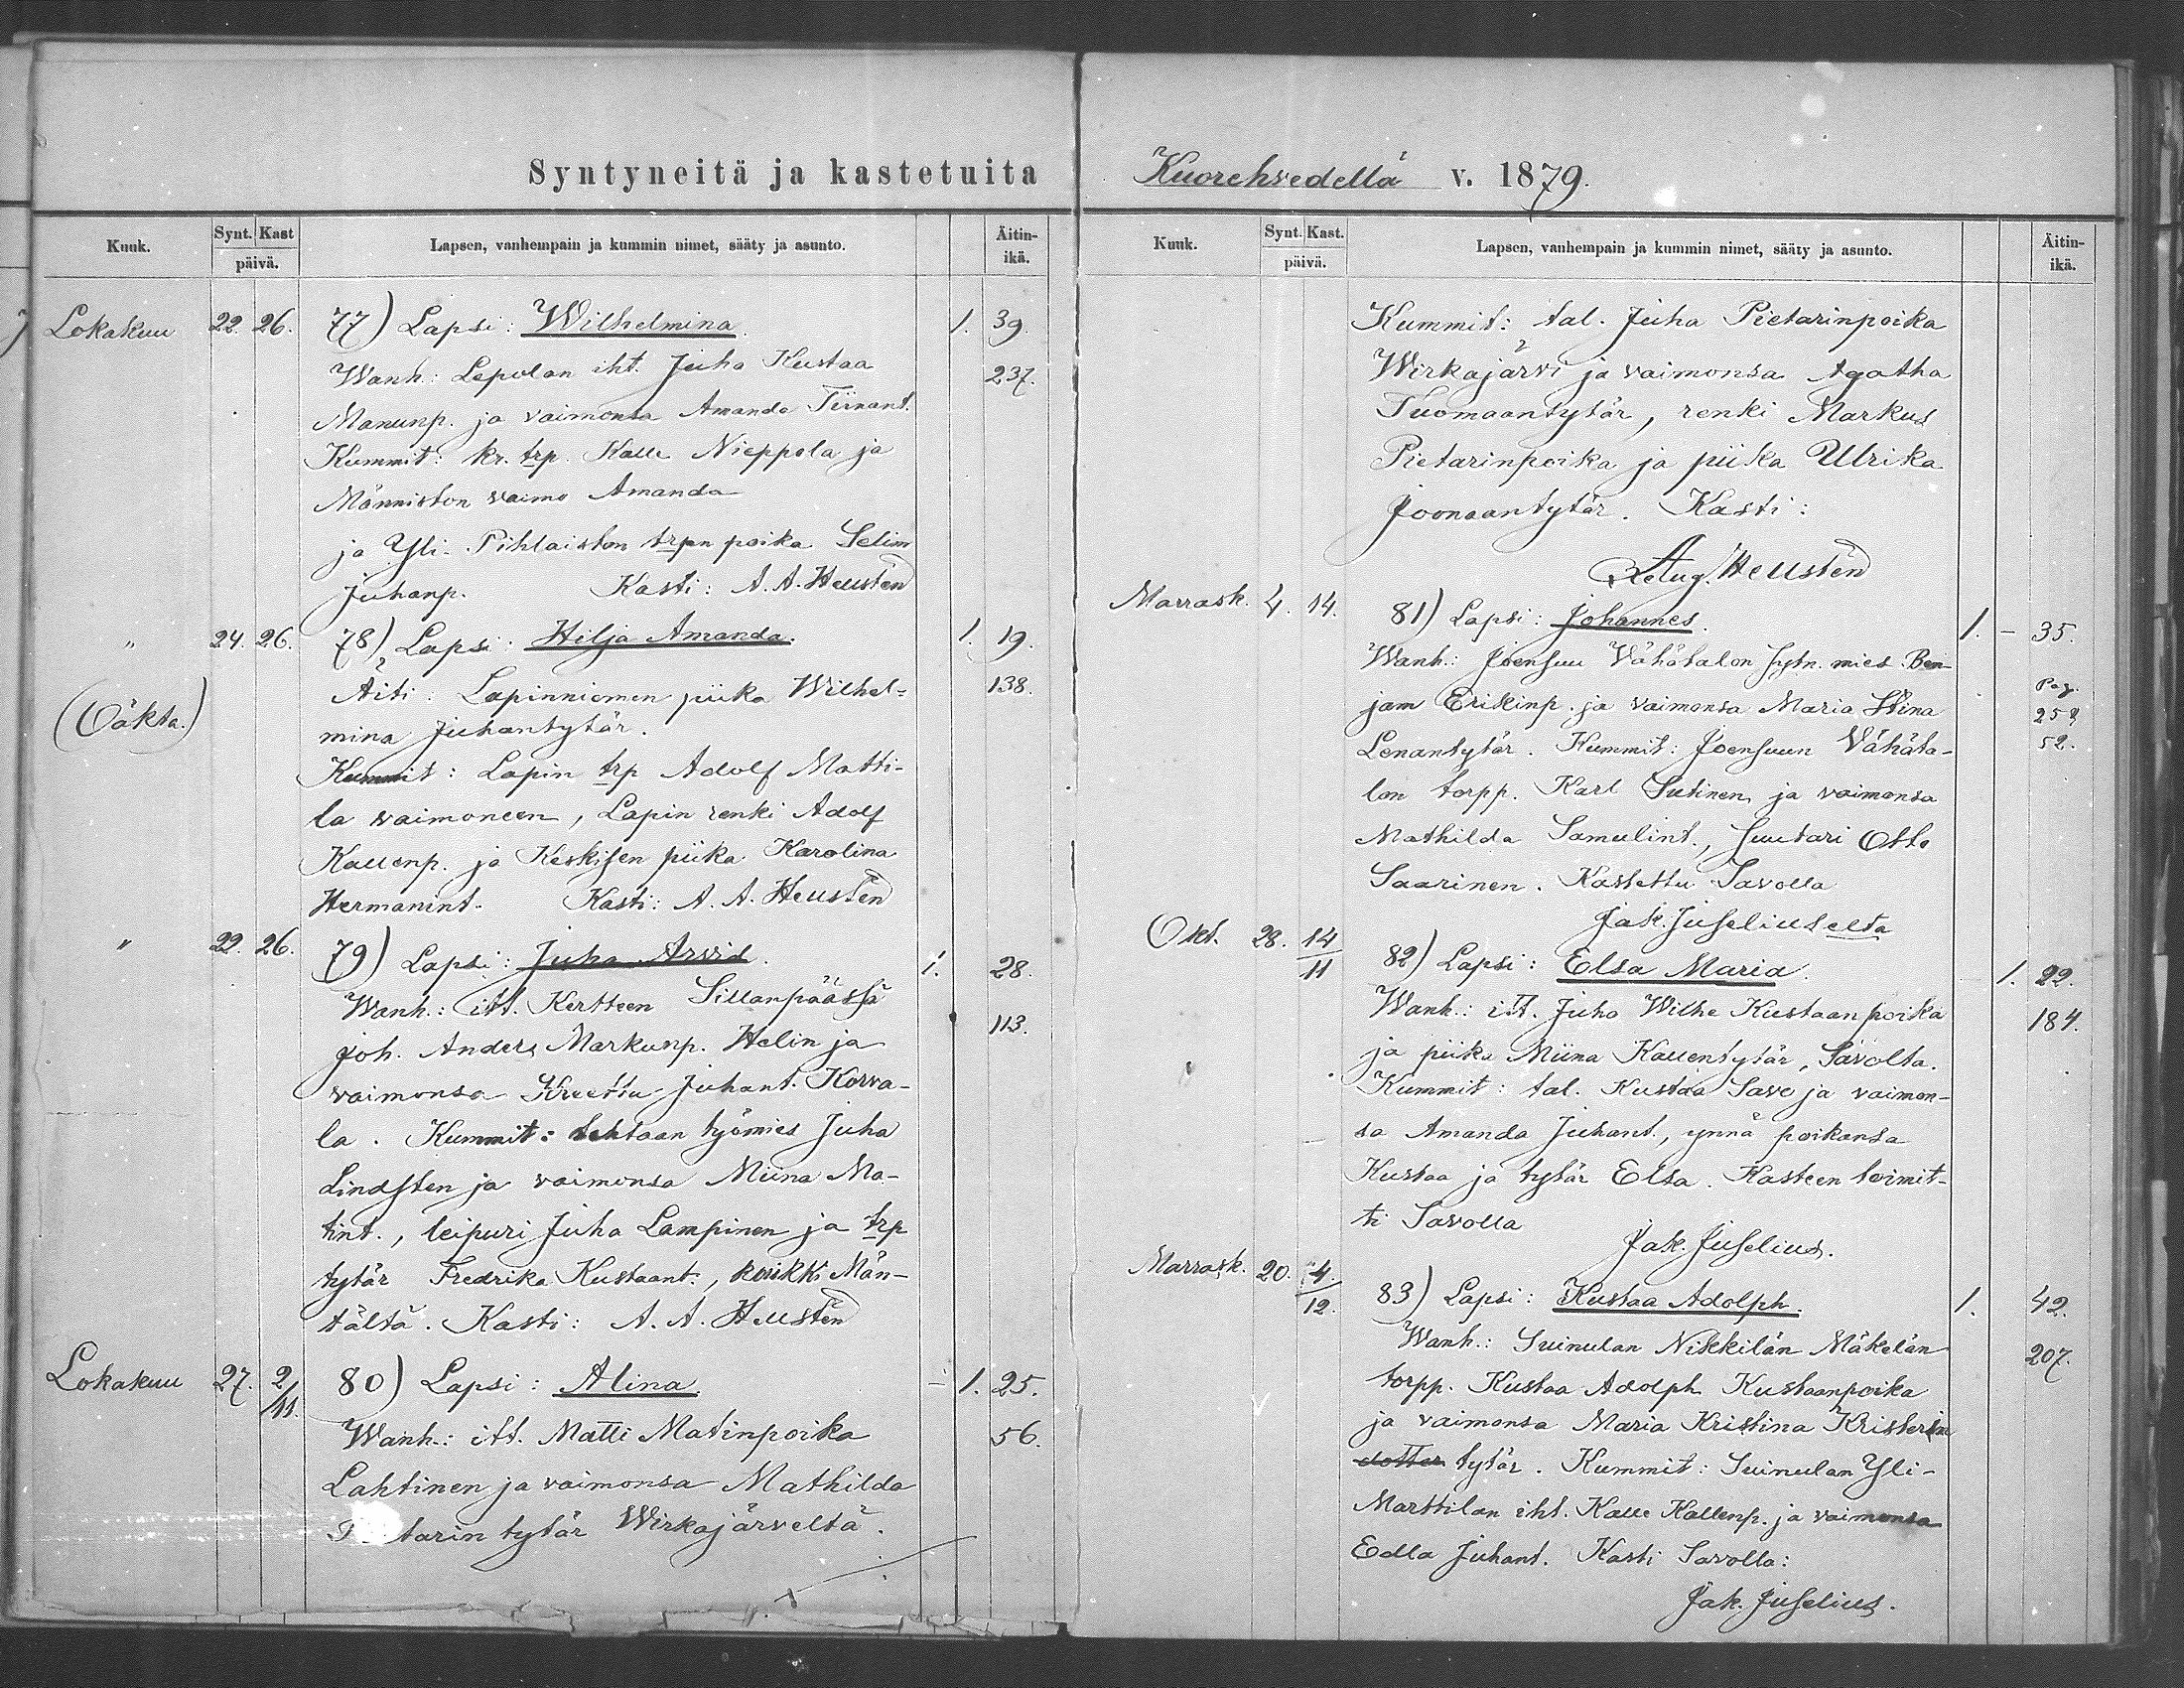 Syntyneitä ja kastetuita
Kuuk. Synt. Kast päivä. Lapsen, vanhempain ja kummin nimet, sääty ja asunto. Äitin-ikä.
Lokakuu 22. 26. 77) Lapsi: Wilhelmina. 1. 39.
Wanh.: Lepolan iht. Juho Kustaa 237.
Manunp. ja vaimonsa Amanda
Kummit: kr. trp. Kalle Nieppola ja
Männistön vaimo Amanda
ja Yli-Pihlaiston trpn poika Selim
Juhanp. Kasti: A. A. Heusten
" 24. 26. 78) Lapsi: Hilja Amanda. 1. 19.
Äiti: Lapinniemen piika Wilhel- 138.
(Oäkta.) mina Juhantytär.
Kummit: Lapin trp Adolf Matti-
la vaimoneen, Lapin renki Adolf
Kallenp. ja Keskisen piika Karolina
Hermanint. Kasti: A. A. Heusten
" 22. 26. 79) Lapsi: Juha Arvid. 1. 28.
Wanh.: itt. Kertteen Sillanpäässä 113.
Joh. Anders Markunp. Helin ja
vaimonsa Kreetta Juhant. Korva-
la. Kummit: tehtaan työmies Juha
Lindsten ja vaimonsa Miina Ma-
tint., leipuri Juha Lampinen ja trp
tytär Fredrika Kustaant., Män-
tältä. Kasti: A. A. Heusten
Lokakuu 27. 2/11. 80) Lapsi: Alina - 1. 25.
Wanh.: itt. Matti Matinpoika 56.
Lahtinen ja vaimonsa Mathilda
tarin tytär Wirkajärveltä.
Kuorehvedellä v. 1879.
Kuuk. Synt. Kast. päivä. Lapsen, vanhempain ja kummin nimet, sääty ja asunto. Äitin-ikä.
Kummit: tal. Juha Pietarinpoika
Wirkajärvi ja vaimonsa Agatha
Tuomaantytär, renki Markus
Pietarinpoika ja piika Ulrika
Joonaantytär. Kasti:
Aug. Heusten
Marrask. 4. 14. 81) Lapsi: Johannes. 1. - 35.
Wanh.: Joensuu Vähätalon sytn. mies Ben- Pag.
jam Erikinp. ja vaimonsa Maria Stina 252
Lenantytär. Kummit: Joensuun Vähäta- 52.
lon torpp. Karl Sutinen, ja vaimonsa
Mathilda Samulint., suutari Otto
Saarinen. Kastettu Savolla
Jak. Juseliuselta
Okt. 28. 14/11 82) Lapsi: Elsa Maria. 1. 22.
Wanh.: itt. Juho Wilhe Kustaanpoika 184.
ja piika Miina Kallentytär, Savolta.
Kummit: tal. Kustaa Savo ja vaimon-
sa Amanda Juhant., ynnä poikansa
Kustaa ja tytär Elsa. Kasteen toimit-
ti Savolla
Jak. Juselius.
Marrask. 20. 4/12. 83) Lapsi: Kustaa Adolph. 1. 42.
Wanh.: Suinulan Nikkilän Mäkelän 207.
torpp. Kustaa Adolph Kustaanpoika
ja vaimonsa Maria Kristina Kristerin
dotter tytär. Kummit: Suinulan Yli-
Marttilan iht. Kalle Kallenp. ja vaimonsa
Edla Juhant. Kasti Savolla:
Jak. Juselius.